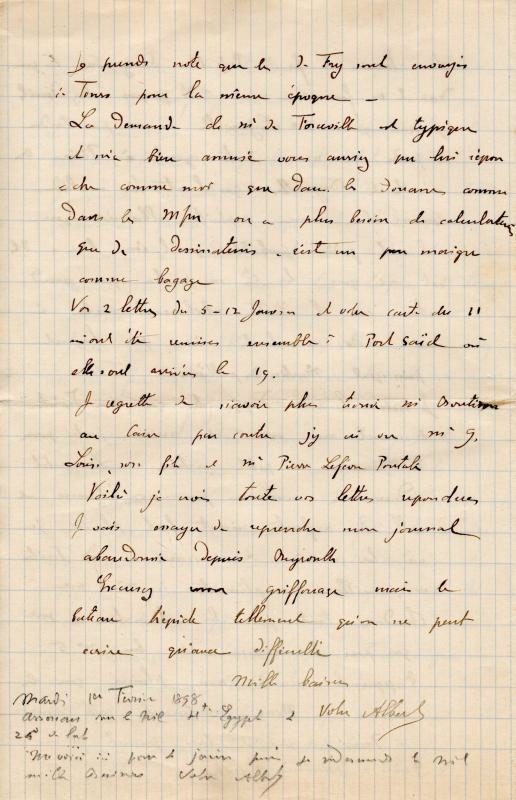 Je prends note que les de Fry sont envoyés
à Tours pour la même époque –
La demande de mr de Forceville est typique
et m'a bien amusé vous auriez pu lui répon
=dre comme moi que dans les Douanes comme
dans les on a plus besoin de calculateurs
que de dessinateurs. c'est un peu maigre
comme bagage
Vos 2 lettres du 5-12 Janvier et votre carte du 11
m'ont été remises ensemble à Port Saïd où
elles sont arrivées le 19.
Je regrette de n'avoir plus trouvé mr
au Caire par contre j'y ai vu mr G.
Louis, son fils et mr Pierre Lefèvre Pontalis
Voilà je crois toutes vos lettres repondues
Je vais essayer de reprendre mon journal
abandonné depuis Beyrouth
Excusez griffonage mais le
bateau trépide tellement qu'on ne peut
écrire qu'avec difficulté
Mille baisers
Votre Albert
Mardi 1er Février 1898
sur le Nil Hte Egypte
me voici ici pour le
mille Votre Albert